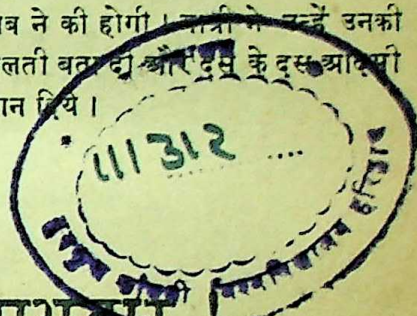 ब ने की होगी । यात्री ने उन्हें उनकी
लती बता दी और दस के दस आदमी
ान दिये ।
111312 ....
गुरुकुल काँगड़ी विश्वविद्यालय हरिद्वार